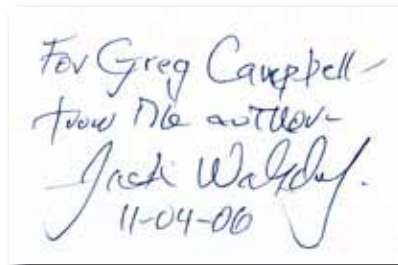 For Greg Campbell -
from the author -
Jack Walsdorf.
11-04-06